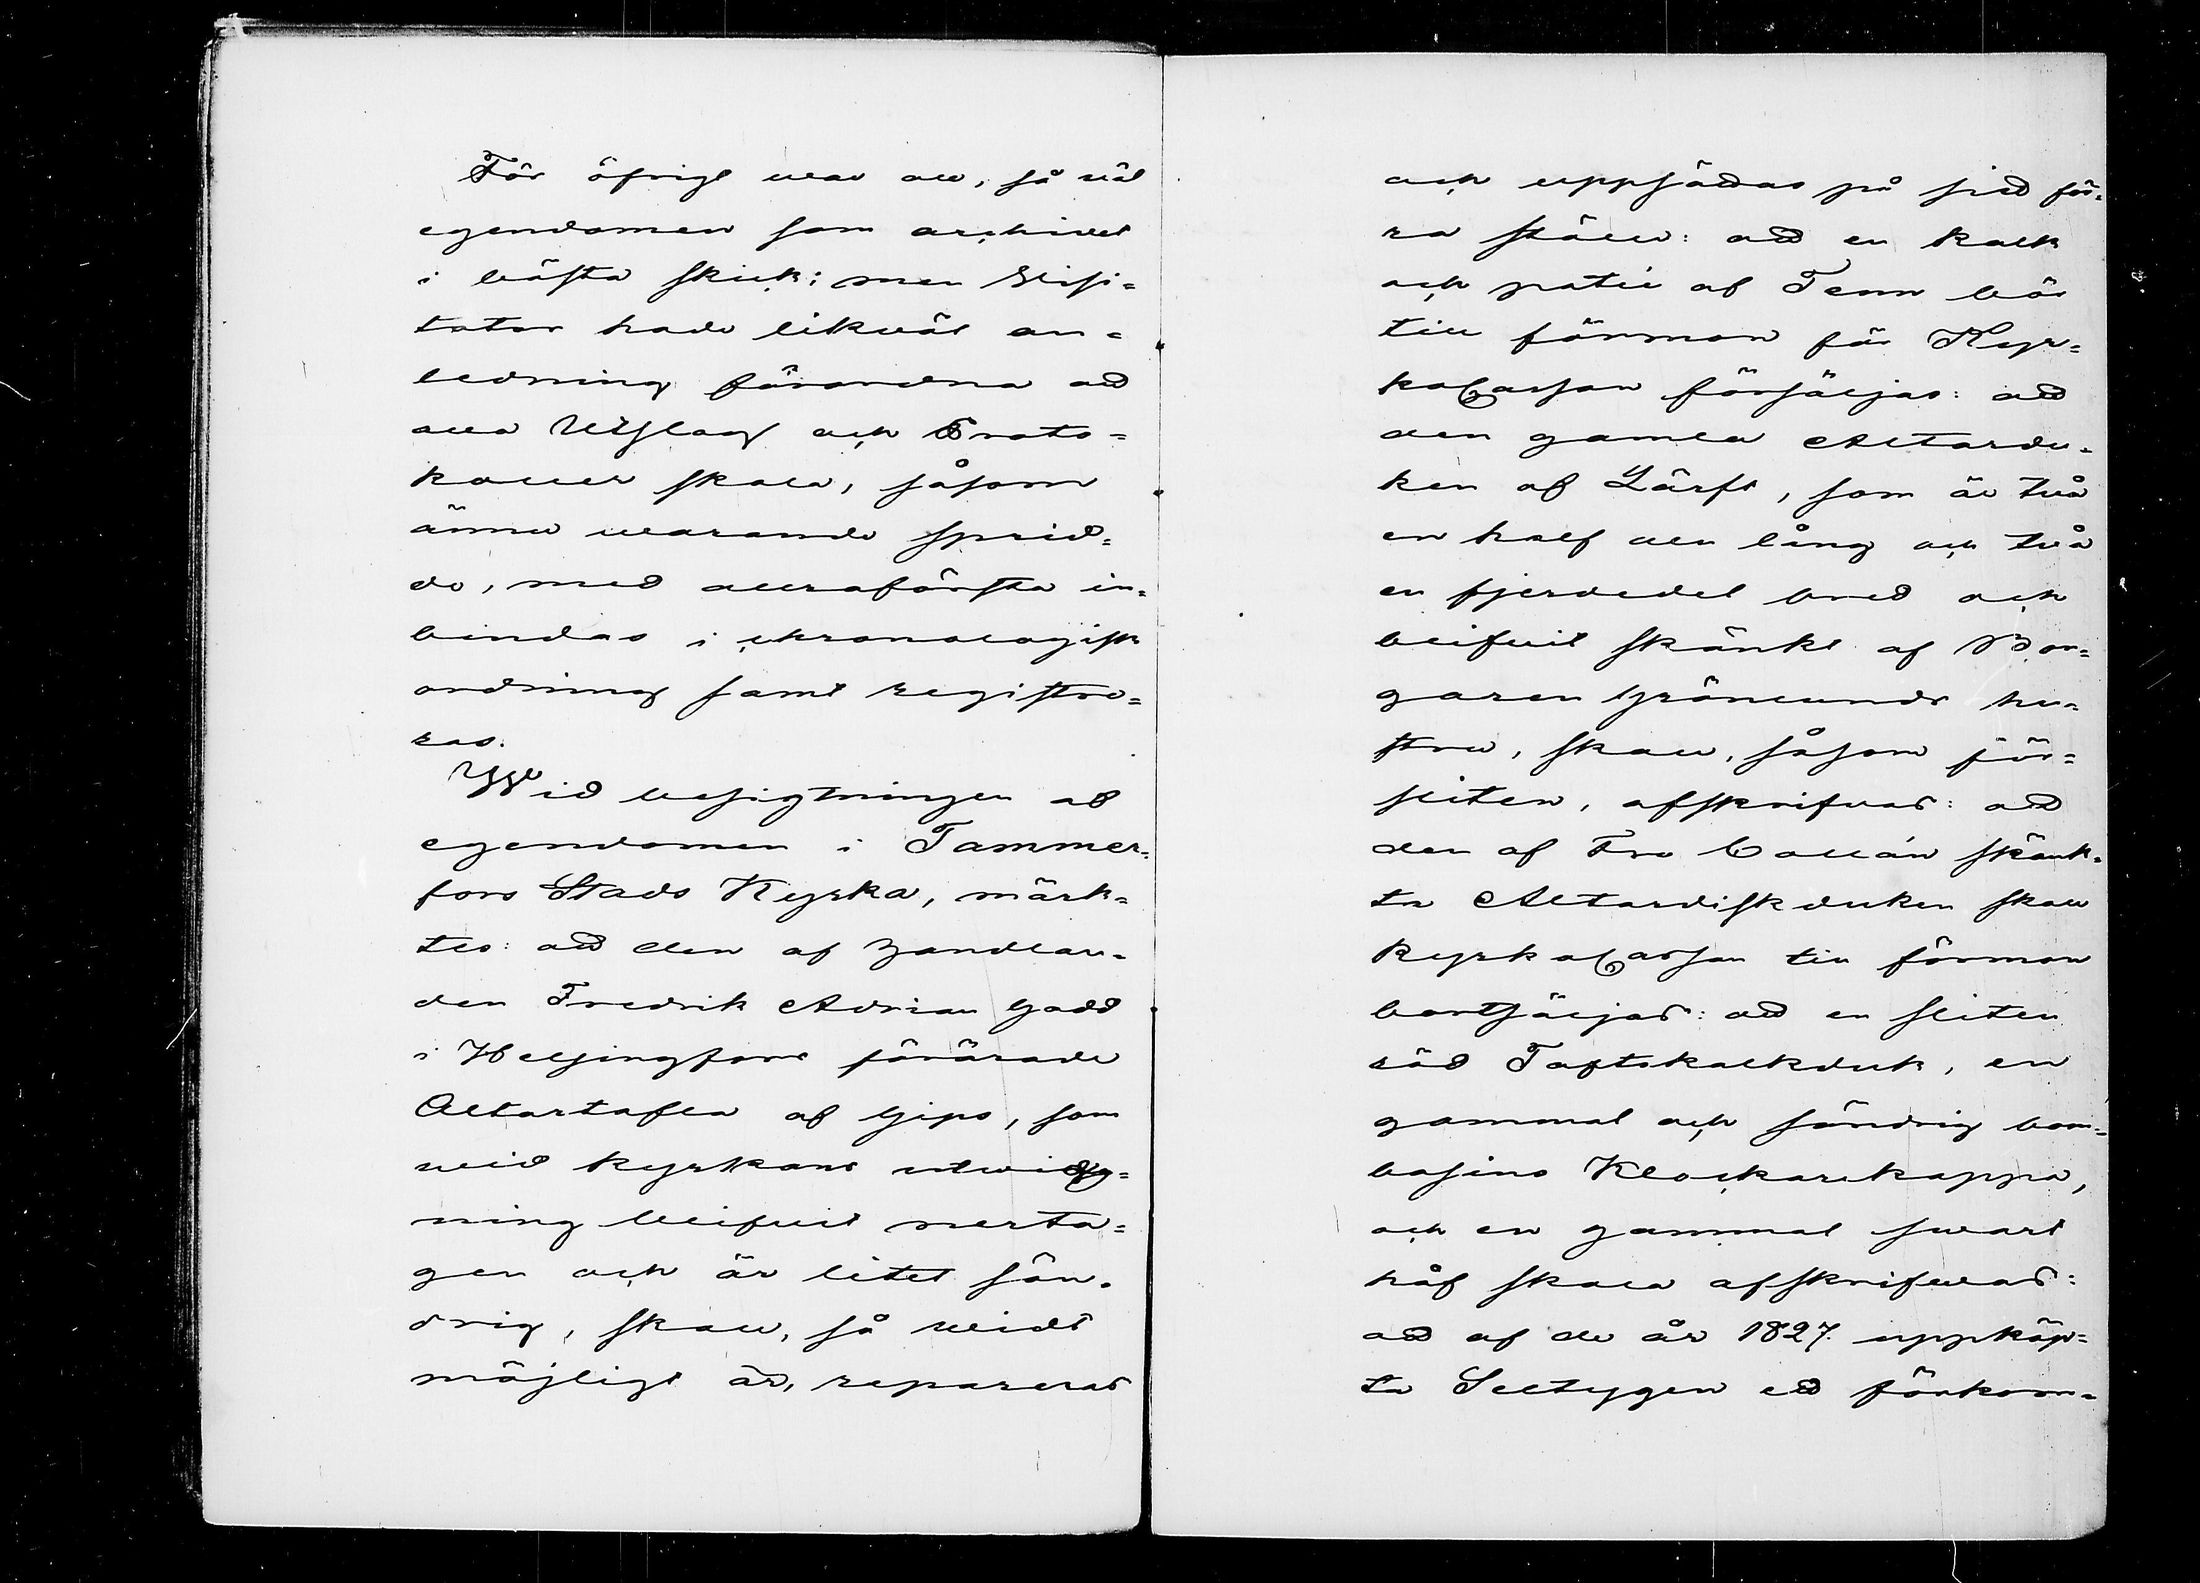 För öfrigt war all, så väl
egendomen som archivet
i bästa skick: men Visi=
tator hade likväl an=
ledning förordna att
alla Utslag och Proto=
koller skola, såsom
ännu warande sprid=
de, med alraförsta in=
bindas i chronologisk
ordning samt registre=
ras.
Wid besigtningen af
egendomen i Tammer=
fors Stads Kyrka, märk=
tes: att den af Handlan=
den Fredrik Adrian Gadd
i Helsingfors förärade
Altartafla af Gips, som
wid kyrkans utwidg=
ning blifvit nerta=
gen och är litet sön=
drig, skall, så widt
möjligt är, repareras
och uppsättas på sitt för=
ra ställe: att en kalk
och paten af Tenn bör
till förmon för Kyr=
koCassan försäljas: att
den gamla Altardu=
ken af Lärft, som är två
en half aln lång och två
en fjerdedel bred och
blifvit skänkt af Bor=
garen Grönlunds hu=
stru, skall, såsom för=
sliten, afskrifvas: att
den af Fru Collán skänk=
ta Altardiskduken skall
KyrkoCassan till förmon
bortsäljas: att en sliten
röd Taftskalkduk, en
gammal och söndrig bom=
basins Klockarekappa,
och en gammal svart
håf skola afskrifwas:
att af de år 1827 uppköp=
ta Seltygen ett förkom=